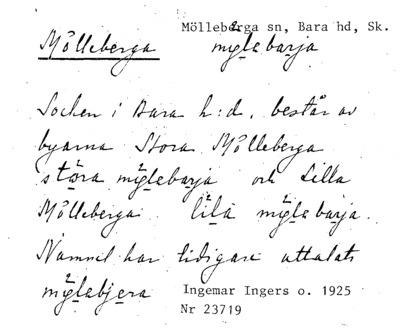 Mölleberga sn, Bara hd, Sk.
Mölleberga mǫ̈lebarja
Socken i Bara h:d, består av
byarna Stora Mölleberga
stära mǫ̈lebarja och Lilla
Mölleberga lila mǫ̈lebarja.
Namnet har tidigare uttalats
mǫ̈lebjera
Ingemar Ingers o. 1925
Nr 23719